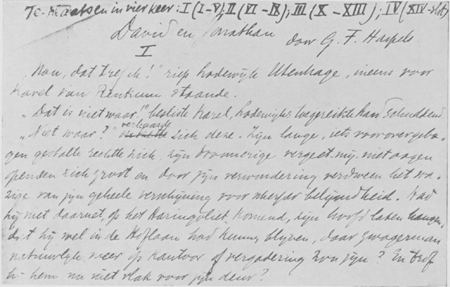 Te plaatsen in vier keer: I (I-V); II (VI-IX); III (X-XIII); IV (XIV-slot)
David en Jonathan
door G. F. Haspels
I
"Nou, dat tref ik!" riep Lodewijk Utenhage, ineens voor
Karel van Renkum staande.
"Dat is niet waar!" besliste Karel, Lodewijks toegereikte hand schuddend.
"Niet waar?" verbaasde zich deze. Zijn lange, iets voorovergebo-
gen gestalte rechtte zich, zijn droomerige vergeet-mij-niet oogen
openden zich groot en door zijn verwondering verdween het va-
zige van zijn geheele verschijning voor scherpe belijndheid. Had
hij niet daarnet, op het Haringvliet komend, zijn hoofd laten hangen,
dat hij wel in de Hoflaan had kunnen blijven, daar zwagerman
natuurlijk weer op kantoor of vergadering zou zijn? En trof
hij hem nu niet vlak voor zijn deur?